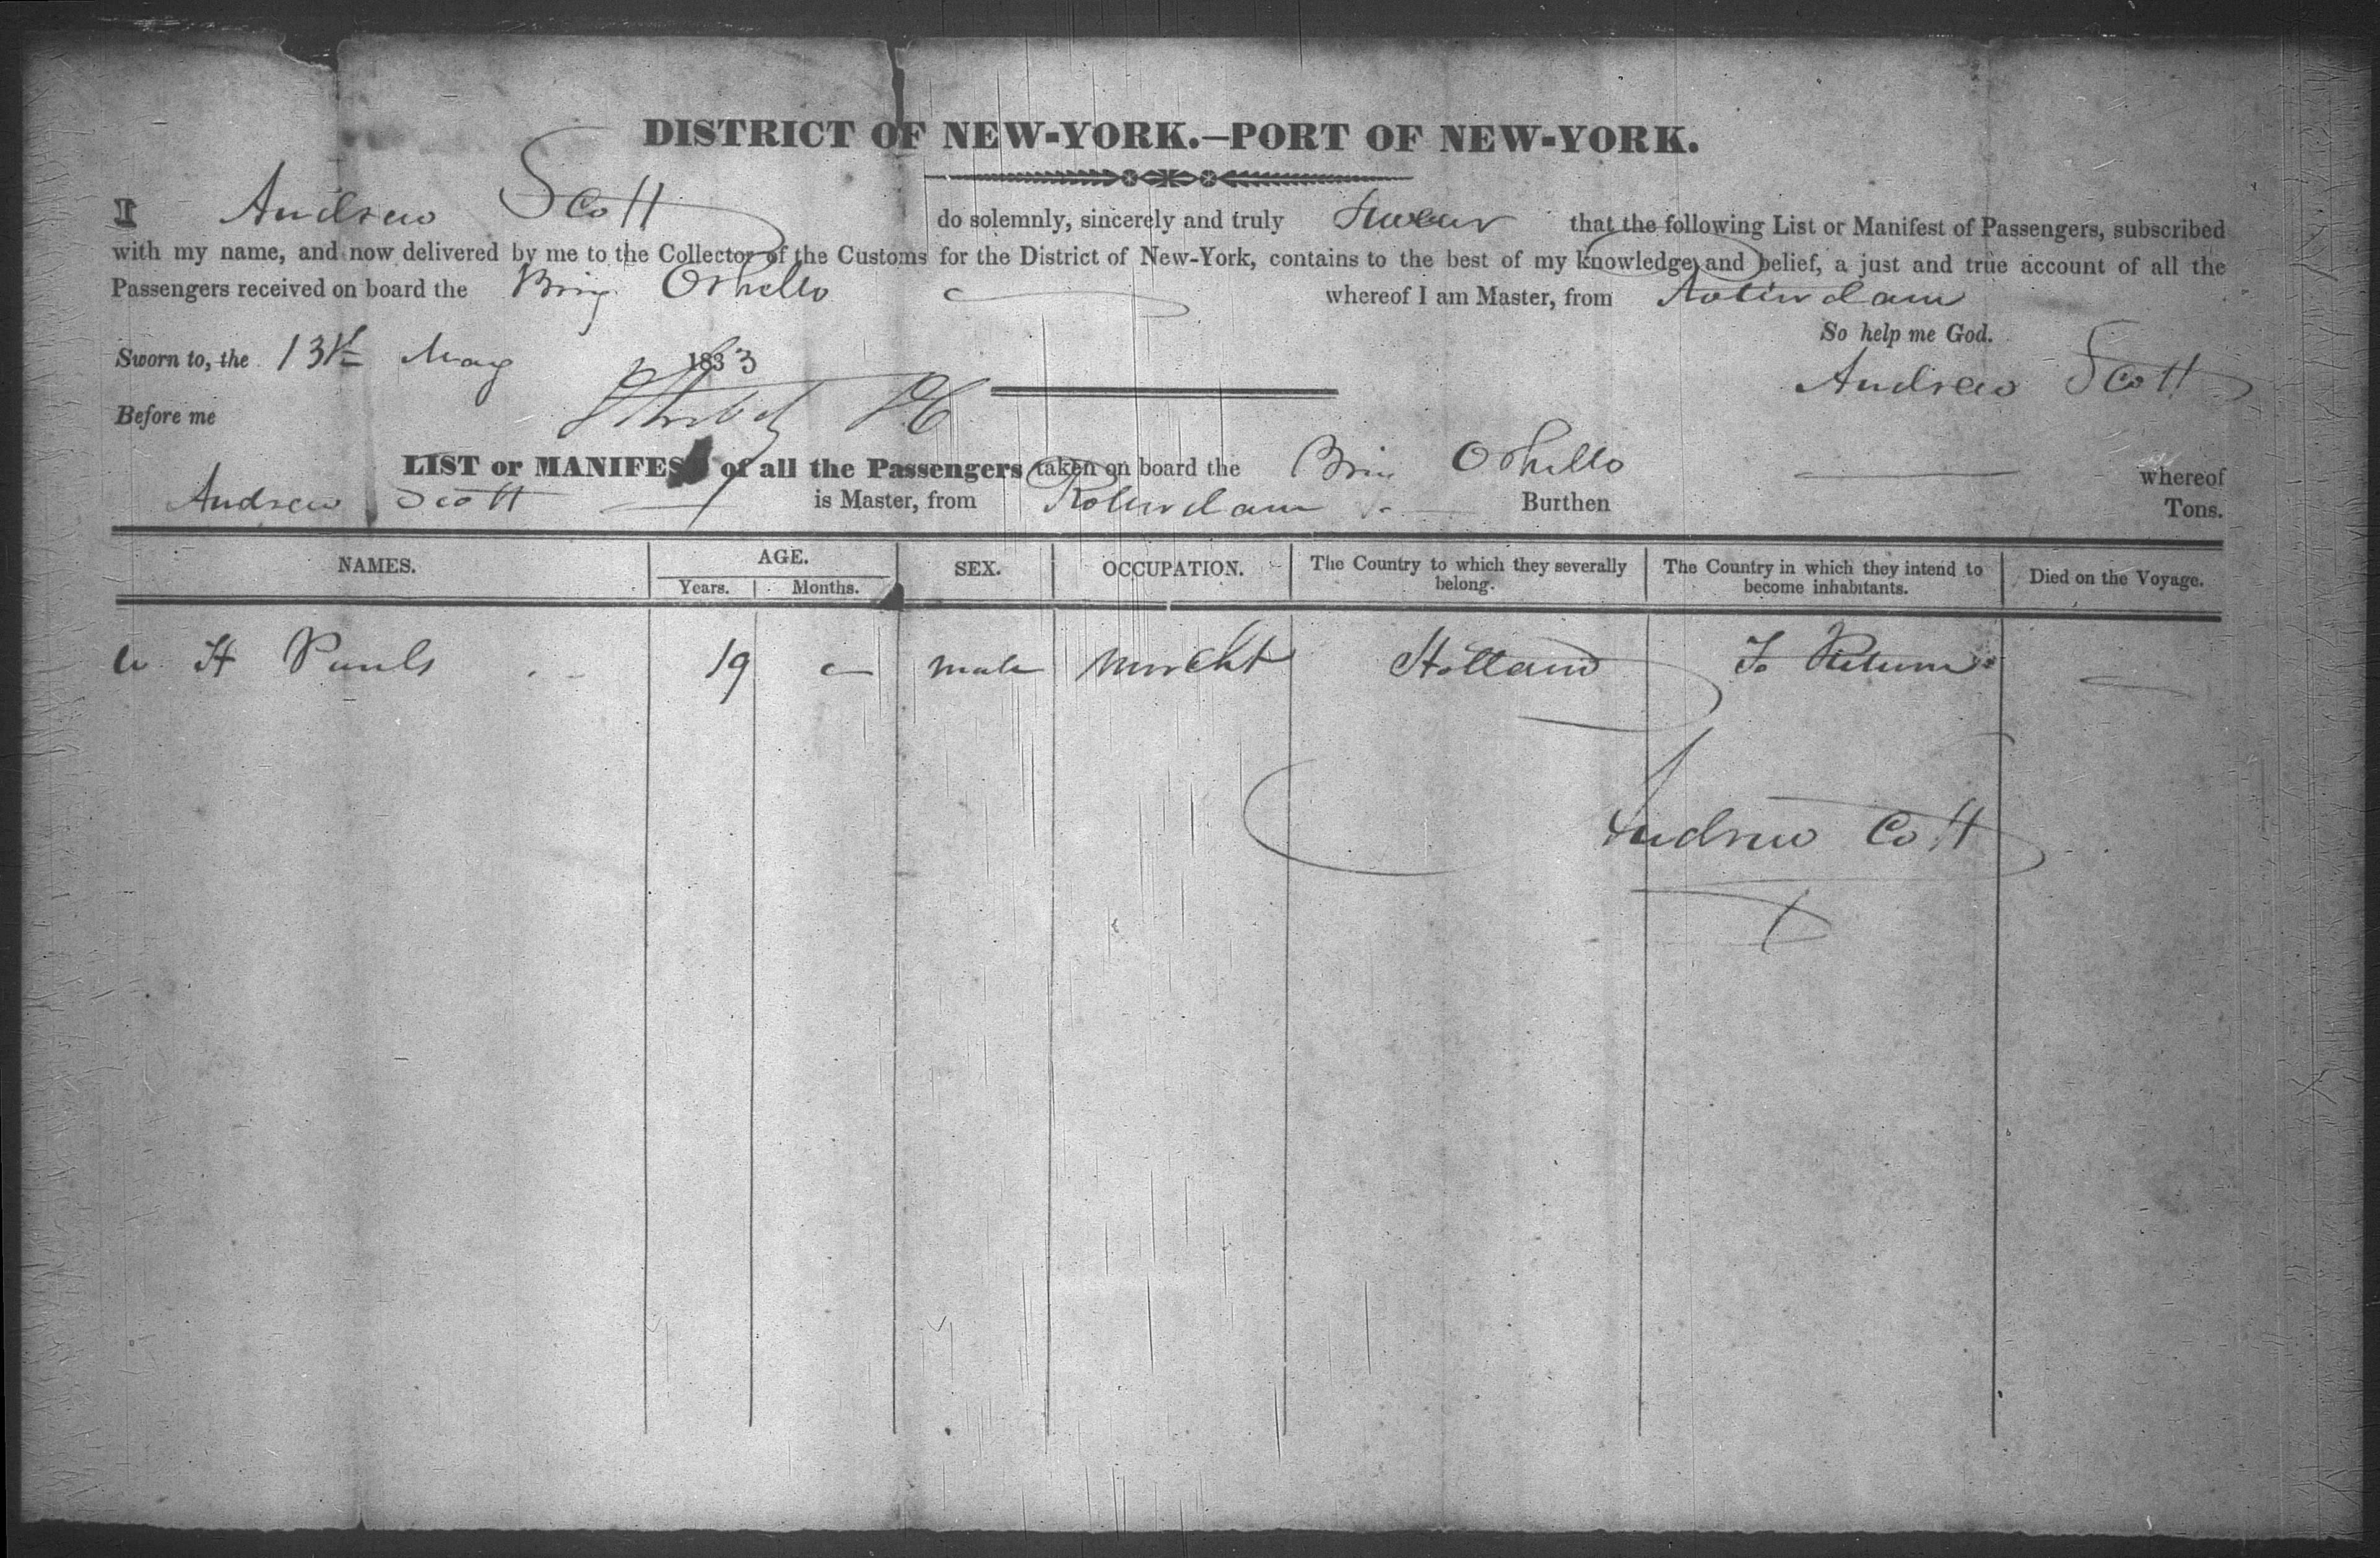 DISTRICT OF NEW-YORK.—PORT OF NEW-YORK.
I Andrew Scott do solemnly, sincerely and truly Swear that the following List or Manifest of Passengers, subscribed
with my name, and now delivered by me to the Collector of the Customs for the District of New-York, contains to the best of my knowledge and belief, a just and true account of all the
Passengers received on board the Brig Othello whereof I am Master, from Rotterdam
So help me God.
Sworn to, the 13th May 1833
Andrew Scott
Before me
LIST or MANIFEST of all the Passengers taken on board the Brig Othello whereof
Andrew Scott is Master, from Rotterdam Burthen Tons.
NAMES. AGE. SEX. OCCUPATION. The Country to which they severally belong. The Country in which they intend to become inhabitants. Died on the Voyage.
Years. Months.
H Pauls 19 — male Mercht Holland To Return —
Andrew Scott